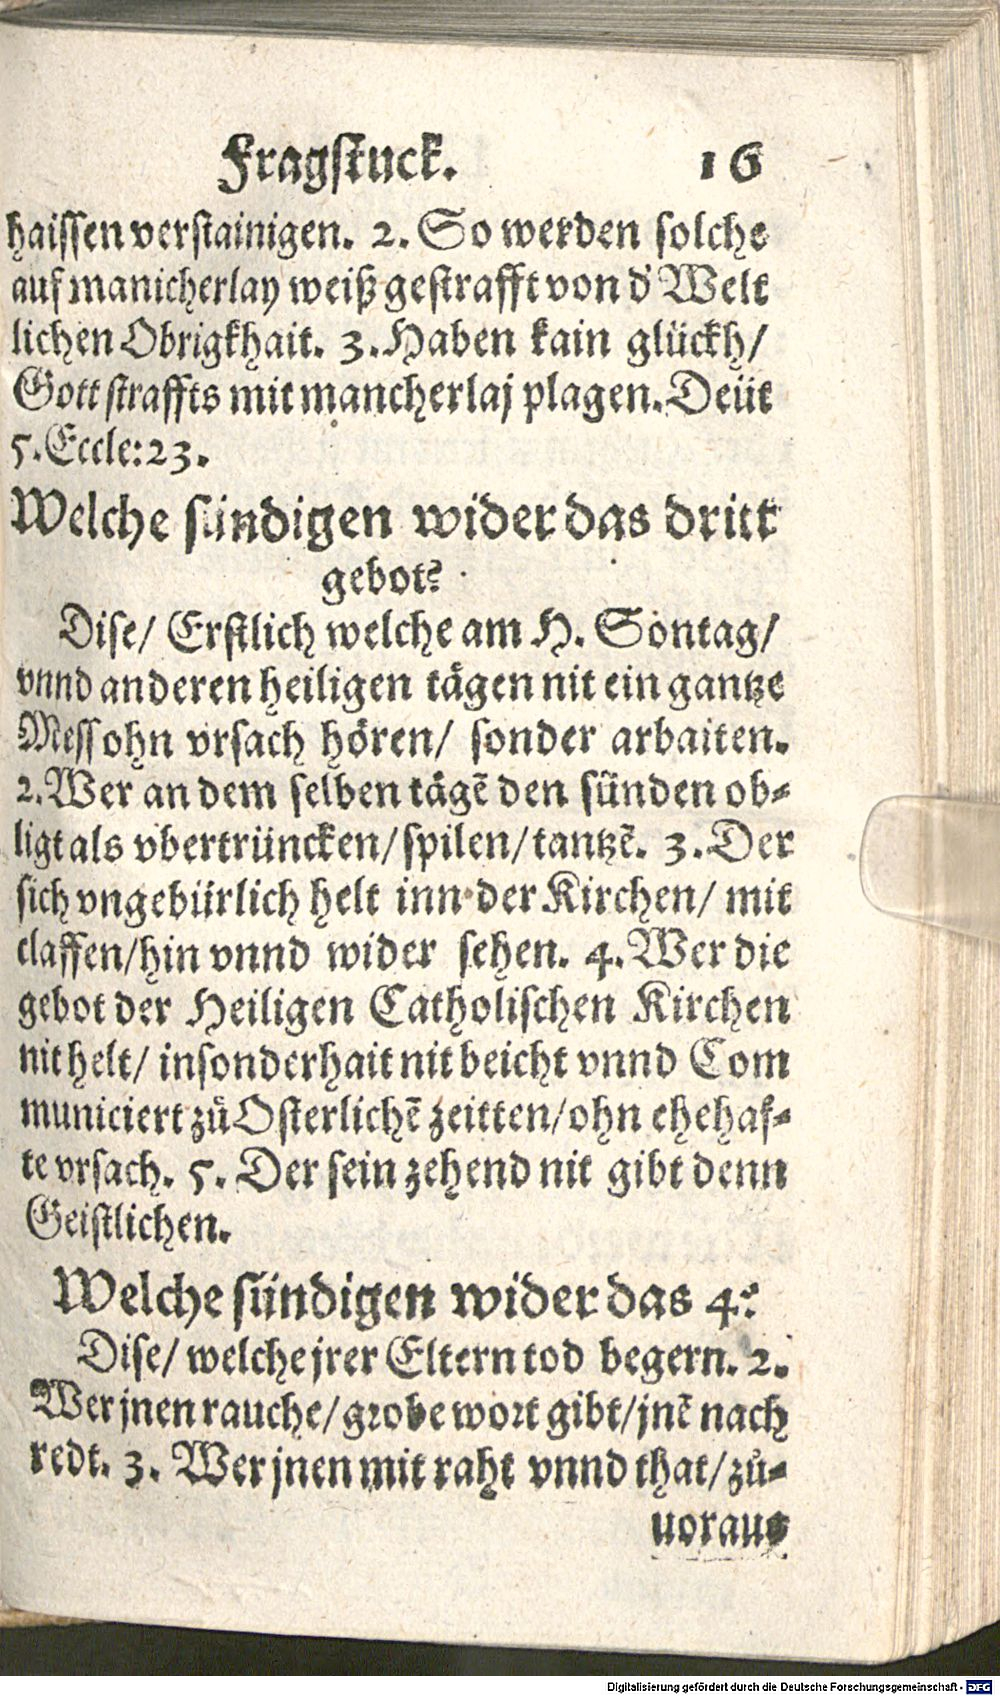 Fragstuck. 16
haissen verstainigen. 2. So werden solche
auf manicherlay weiß gestrafft von d' Welt
lichen Obrigkhait. 3. Haben kain glückh/
Gott straffts mit mancherlaj plagen. Deüt
5. Eccle: 23.
Welche sündigen wider das dritt
gebot?
Dise/ Erstlich welche am H. Sontag/
vnnd anderen heiligen tägen nit ein gantze
Mess ohn vrsach hören/ sonder arbaiten.
2. Wer an dem selben tägē den sünden ob-
ligt als vbertrüncken/ spilen/ tantzē. 3. Der
sich vngebürlich helt inn der Kirchen/ mit
claffen/ hin vnnd wider sehen. 4. Wer die
gebot der Heiligen Catholischen Kirchen
nit helt/ insonderhait nit beicht vnnd Com
municiert zů Osterlichē zeitten/ ohn ehehaf-
te vrsach. 5. Der sein zehend nit gibt denn
Geistlichen.
Welche sündigen wider das 4?
Dise/ welche jrer Eltern tod begern. 2.
Wer jnen rauche/ grobe wort gibt/ jnē nach
redt. 3. Wer jnen mit raht vnnd that/ zů-
uoraus
Digitalisierung gefördert durch die Deutsche Forschungsgemeinschaft - DFG